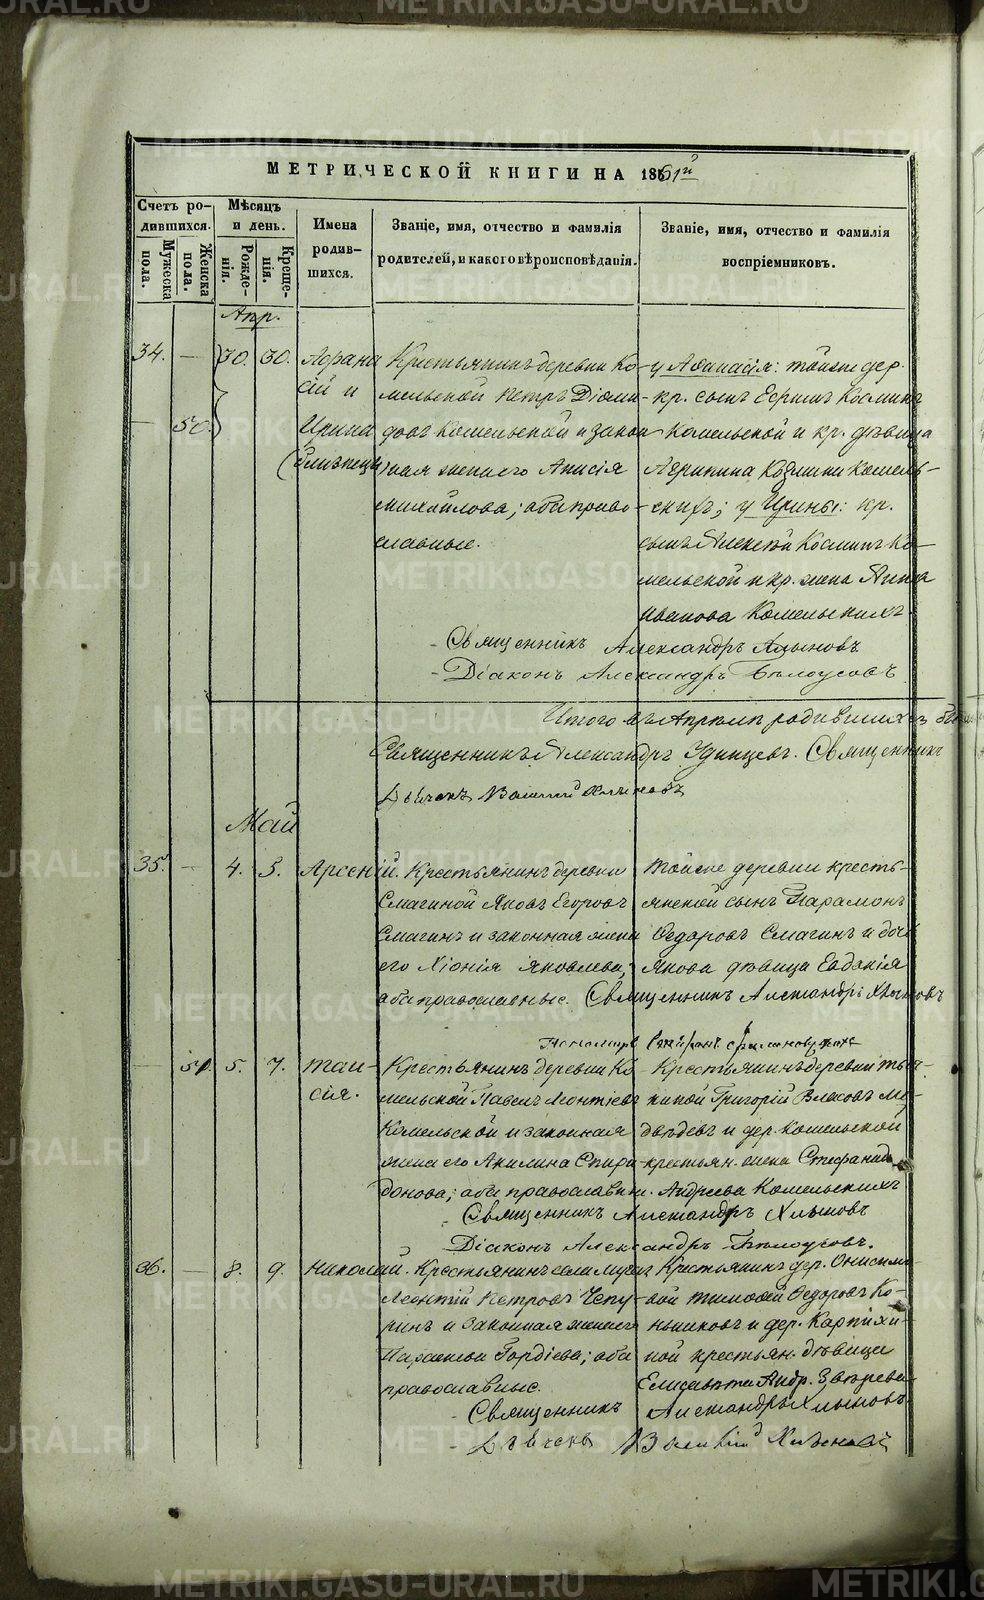 МЕТРИЧЕСКОЙ КНИГИ НА 1861й
Счетъ родившихся.
Мужеска пола.
Женска пола.
Мѣсяцъ и день.
Рожденія.
Крещенія.
Имена родившихся.
Званіе, имя, отчество и фамилія родителей, и какого вѣроисповѣданія.
Званіе, имя, отчество и фамилія воспріемниковъ.
Апр.
34. — 30. 30.
— 50.
Афанасій и
Ирина
(близнецы)
Крестьянинъ деревни Ко-
мельской Петръ Діоми-
довъ Комельской и закон
ная жена его Анисія
Михайлова; оба право-
славные.
у Афанасія: тойже дер.
кр. сынъ Ефимъ Косминъ
Комельской и кр. дѣвица
Агрипина Козмина Комель-
скихъ; у Ирины: кр.
сынъ Алексѣй Косминъ Ко-
мельской и кр. жена Анна
Иванова Комельскихъ.
Священникъ Александръ Хлыновъ
Діаконъ Александръ Бѣлоусовъ
Итого въ Апрѣлѣ родившихся
Священникъ Александръ Удинцевъ. Священникъ
Дьячекъ Василий Хлыновъ
Май
35. — 4. 5. Арсеній.
Крестьянинъ деревни
Смагиной Яковъ Егоровъ
Смагинъ и законная жена
его Хіонія Яковлева;
оба православные.
Тойже деревни кресть-
янской сынъ Парамонъ
Ѳедоровъ Смагинъ и дочь
Якова дѣвица Евдокія
Священникъ Александръ Хлыновъ
— 51. 5. 7. Таи-
сія.
Крестьянинъ деревни Ко-
мельской Павелъ Леонтіевъ
Комельской и законная
жена его Акилина Спири-
донова; оба православные.
Крестьянинъ деревни
Григорій Власовъ Ме-
двѣдевъ и дер. Комельской
крестьян. жена Стефанида
Андреева Комельскихъ
Священникъ Александръ Хлыновъ
Діаконъ Александръ Бѣлоусовъ.
36. — 8. 9. Николай.
Крестьянинъ села
Леонтій Петровъ Чепу-
ринъ и законная жена его
Параскева Гордіева; оба
православные.
Крестьянинъ дер. Онисимо-
вой Тимофей Ѳедоровъ Ко-
ньшиковъ и дер. Карпіхи-
ной крестьян. дѣвица
Елисавета Андр. Звѣрева
Священникъ Александръ Хлыновъ
Дьячекъ Василий Хлыновъ
METRIKI.GASO-URAL.RU